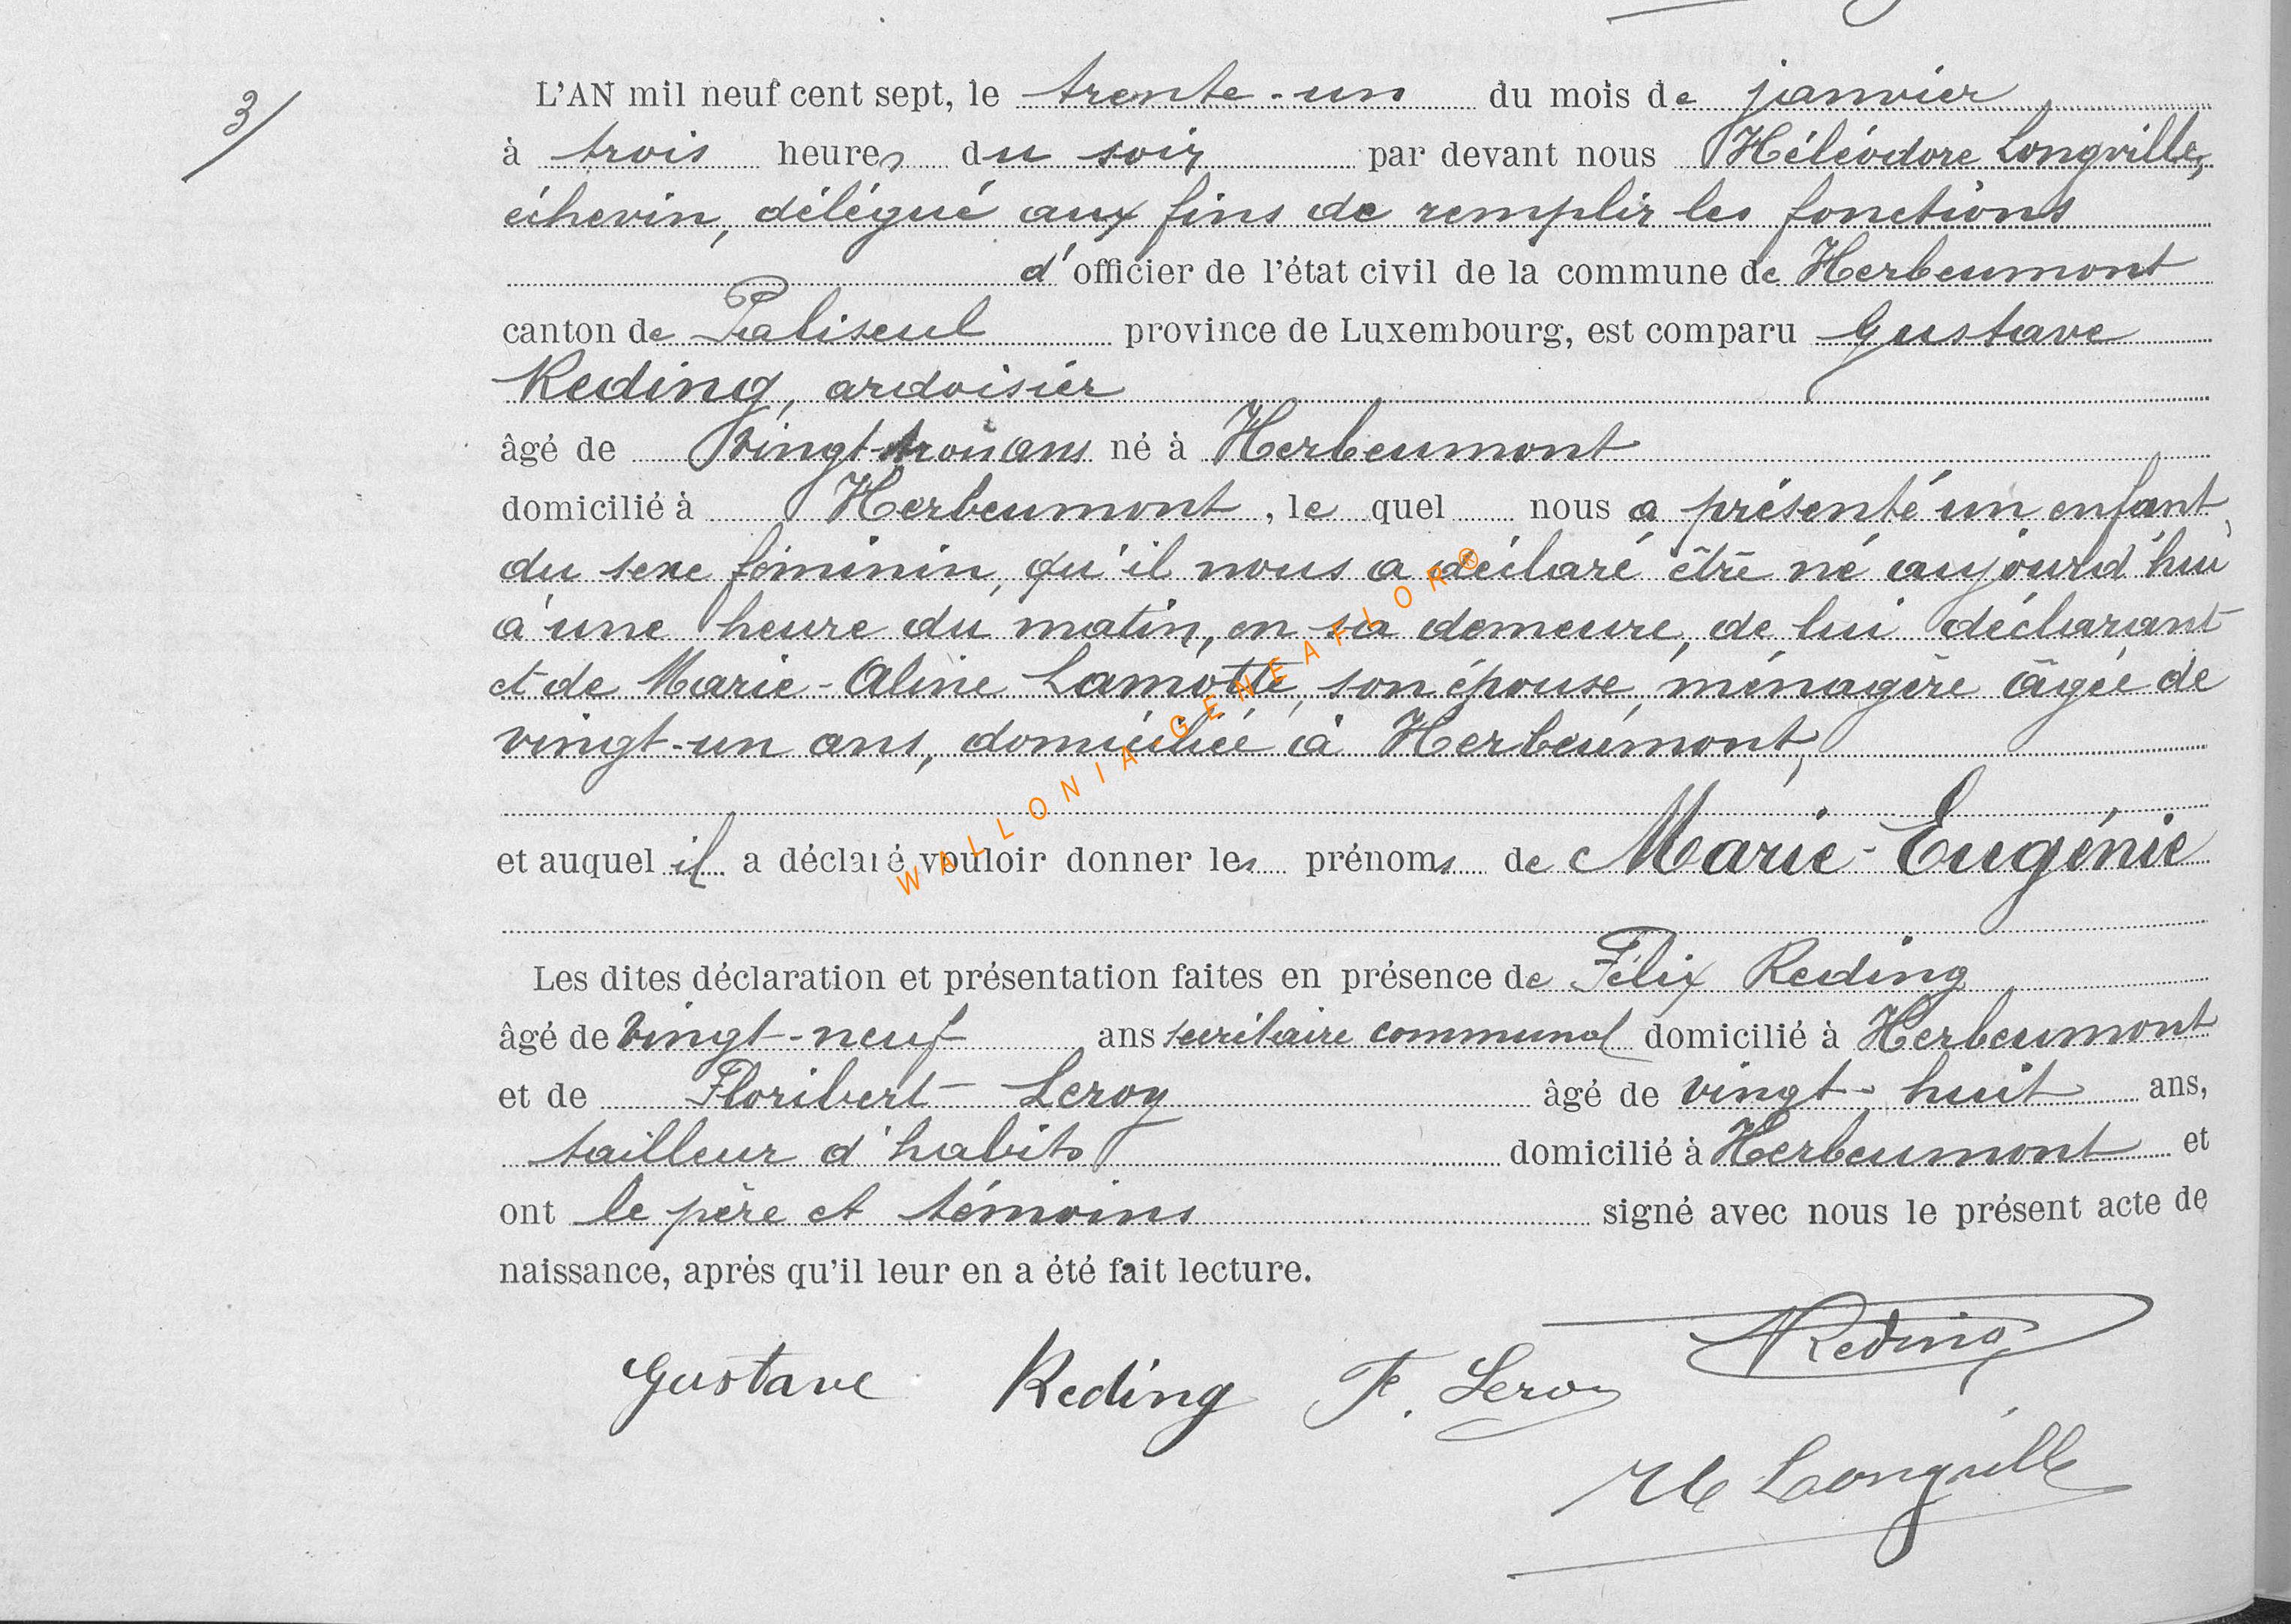 3/
L'AN mil neuf cent sept, le trente-un du mois de janvier
à trois heures du soir par devant nous Héléodore Longville,
échevin, délégué aux fins de remplir les fonctions
d'officier de l'état civil de la commune de Herbeumont
canton de Paliseul province de Luxembourg, est comparu Gustave
Reding, ardoisier
âgé de vingt-trois ans né à Herbeumont
domicilié à Herbeumont, le quel nous a présenté un enfant
du sexe féminin, qu'il nous a déclaré être né aujourd'hui
à une heure du matin, en sa demeure, de lui déclarant
et de Marie-Aline Lamotte, son épouse, ménagère âgée de
vingt-un ans, domiciliée à Herbeumont,
et auquel il a déclaré vouloir donner les prénoms de Marie-Eugénie
Les dites déclaration et présentation faites en présence de Félix Reding
âgé de vingt-neuf ans secrétaire communal domicilié à Herbeumont
et de Floribert Leroy âgé de vingt-huit ans,
tailleur d'habits domicilié à Herbeumont et
ont le père et témoins signé avec nous le présent acte de
naissance, après qu'il leur en a été fait lecture.
Gustave Reding F. Leroy Reding
H Longville
WALLONIA-GENEAFLOR®